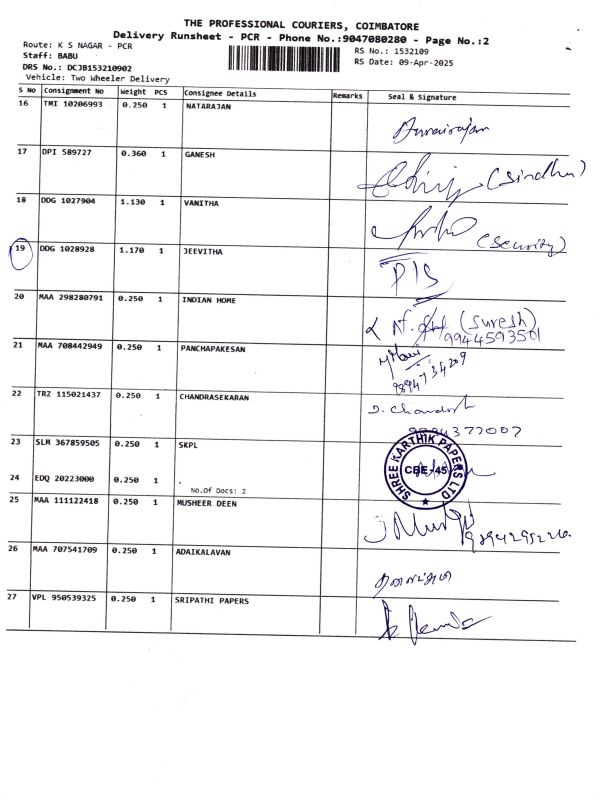 THE PROFESSIONAL COURIERS, COIMBATORE
Delivery Runsheet - PCR - Phone No.:9047080280 - Page No.:2
Route: K S NAGAR - PCR
RS No.: 1532109
Staff: BABU
RS Date: 09-Apr-2025
DRS No.: DCJB153210902
Vehicle: Two Wheeler Delivery
S No Consignment No Weight PCS Consignee Details Remarks Seal & Signature
16 TMI 10206993 0.250 1 NATARAJAN
17 DPI 589727 0.360 1 GANESH
(Sindhu)
18 DDG 1027904 1.130 1 VANITHA
(Security)
19 DDG 1028928 1.170 1 JEEVITHA
P/S
20 MAA 298280791 0.250 1 INDIAN HOME
(Suresh)
9944593501
21 MAA 708442949 0.250 1 PANCHAPAKESAN
9894734209
22 TRZ 115021437 0.250 1 CHANDRASEKARAN
23 SLM 367859505 0.250 1 SKPL
SHREE KARTHIK PAPERS LTD
CBE-45
24 EDQ 20223000 0.250 1
No.Of Docs: 2
25 MAA 111122418 0.250 1 MUSHEER DEEN
26 MAA 707541709 0.250 1 ADAIKALAVAN
27 VPL 950539325 0.250 1 SRIPATHI PAPERS